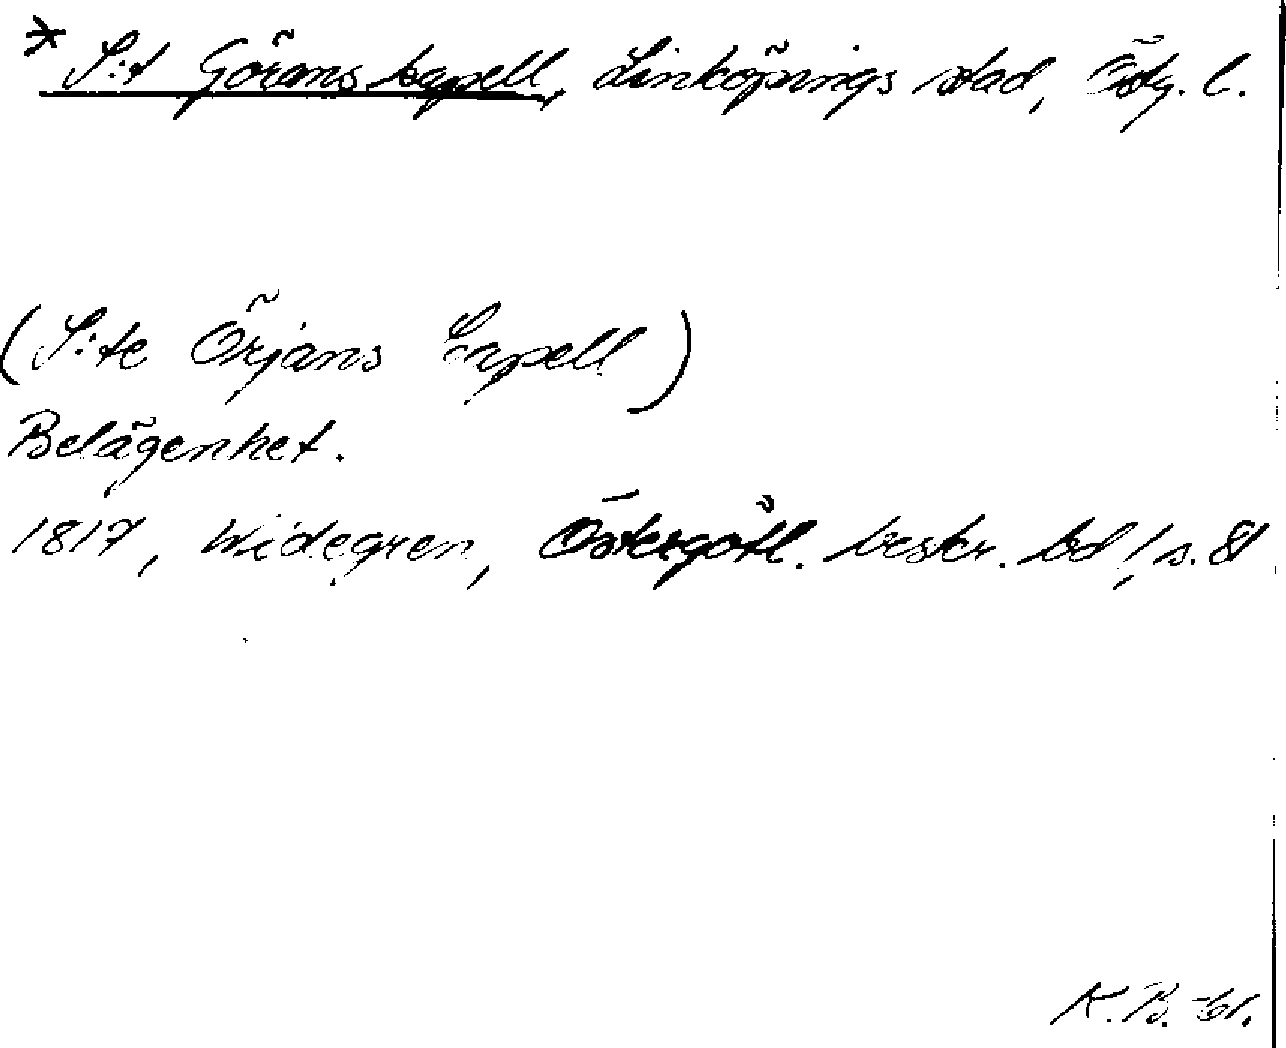 * S:t Görans kapell, Linköpings stad, Östg. l.
(S:te Örjans Capell)
Belägenhet.
1817, Widegren, Östergötl. beskr. bd 1, s. 81
K.B. -61.